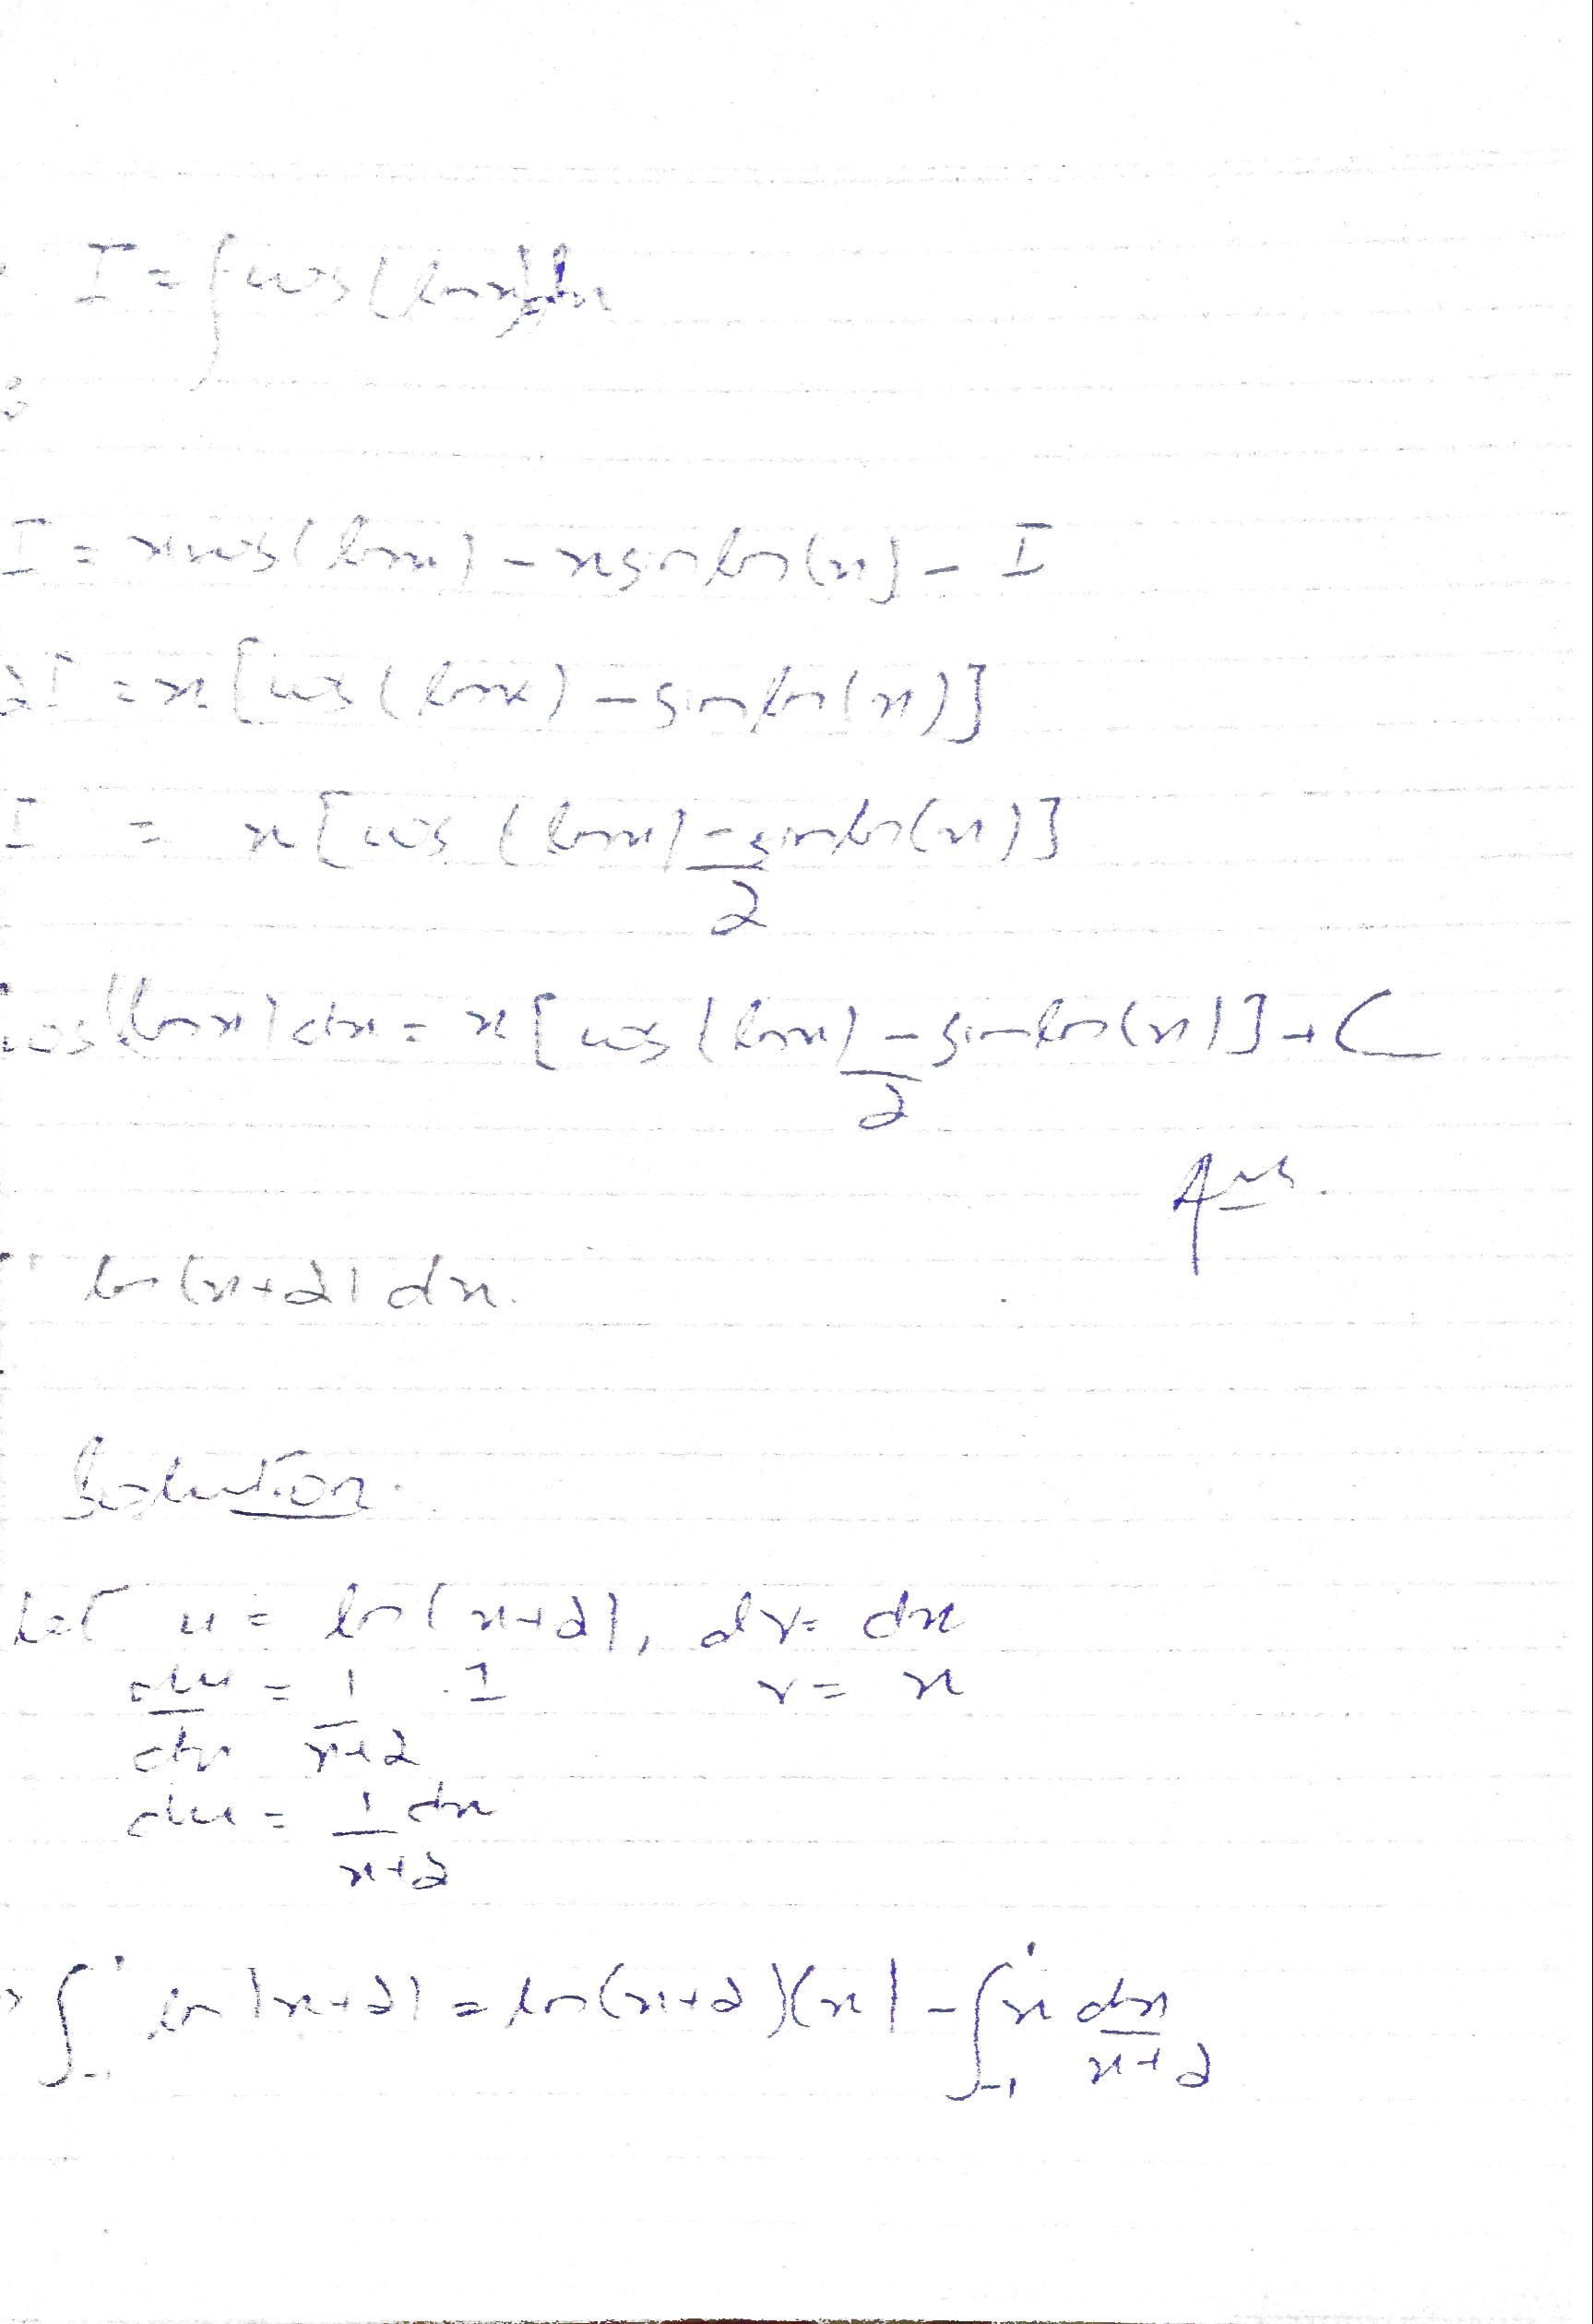 I = ∫cos(lnx)dx
I = xcos(lnx) - xsinln(x) - I
2I = x[cos(lnx) - sinln(x)]
I = x[cos(lnx) - sinln(x)]
2
cos(lnx)dx = x[cos(lnx) - sinln(x)] + C
2
Ans.
ln(x+2)dx.
Solution.
Let u = ln(x+2), dv = dx
du = 1 . 1 v = x
dx x+2
du = 1 dx
x+2
∫₋₁¹ ln(x+2) = ln(x+2)(x) - ∫₋₁¹ x dx
x+2